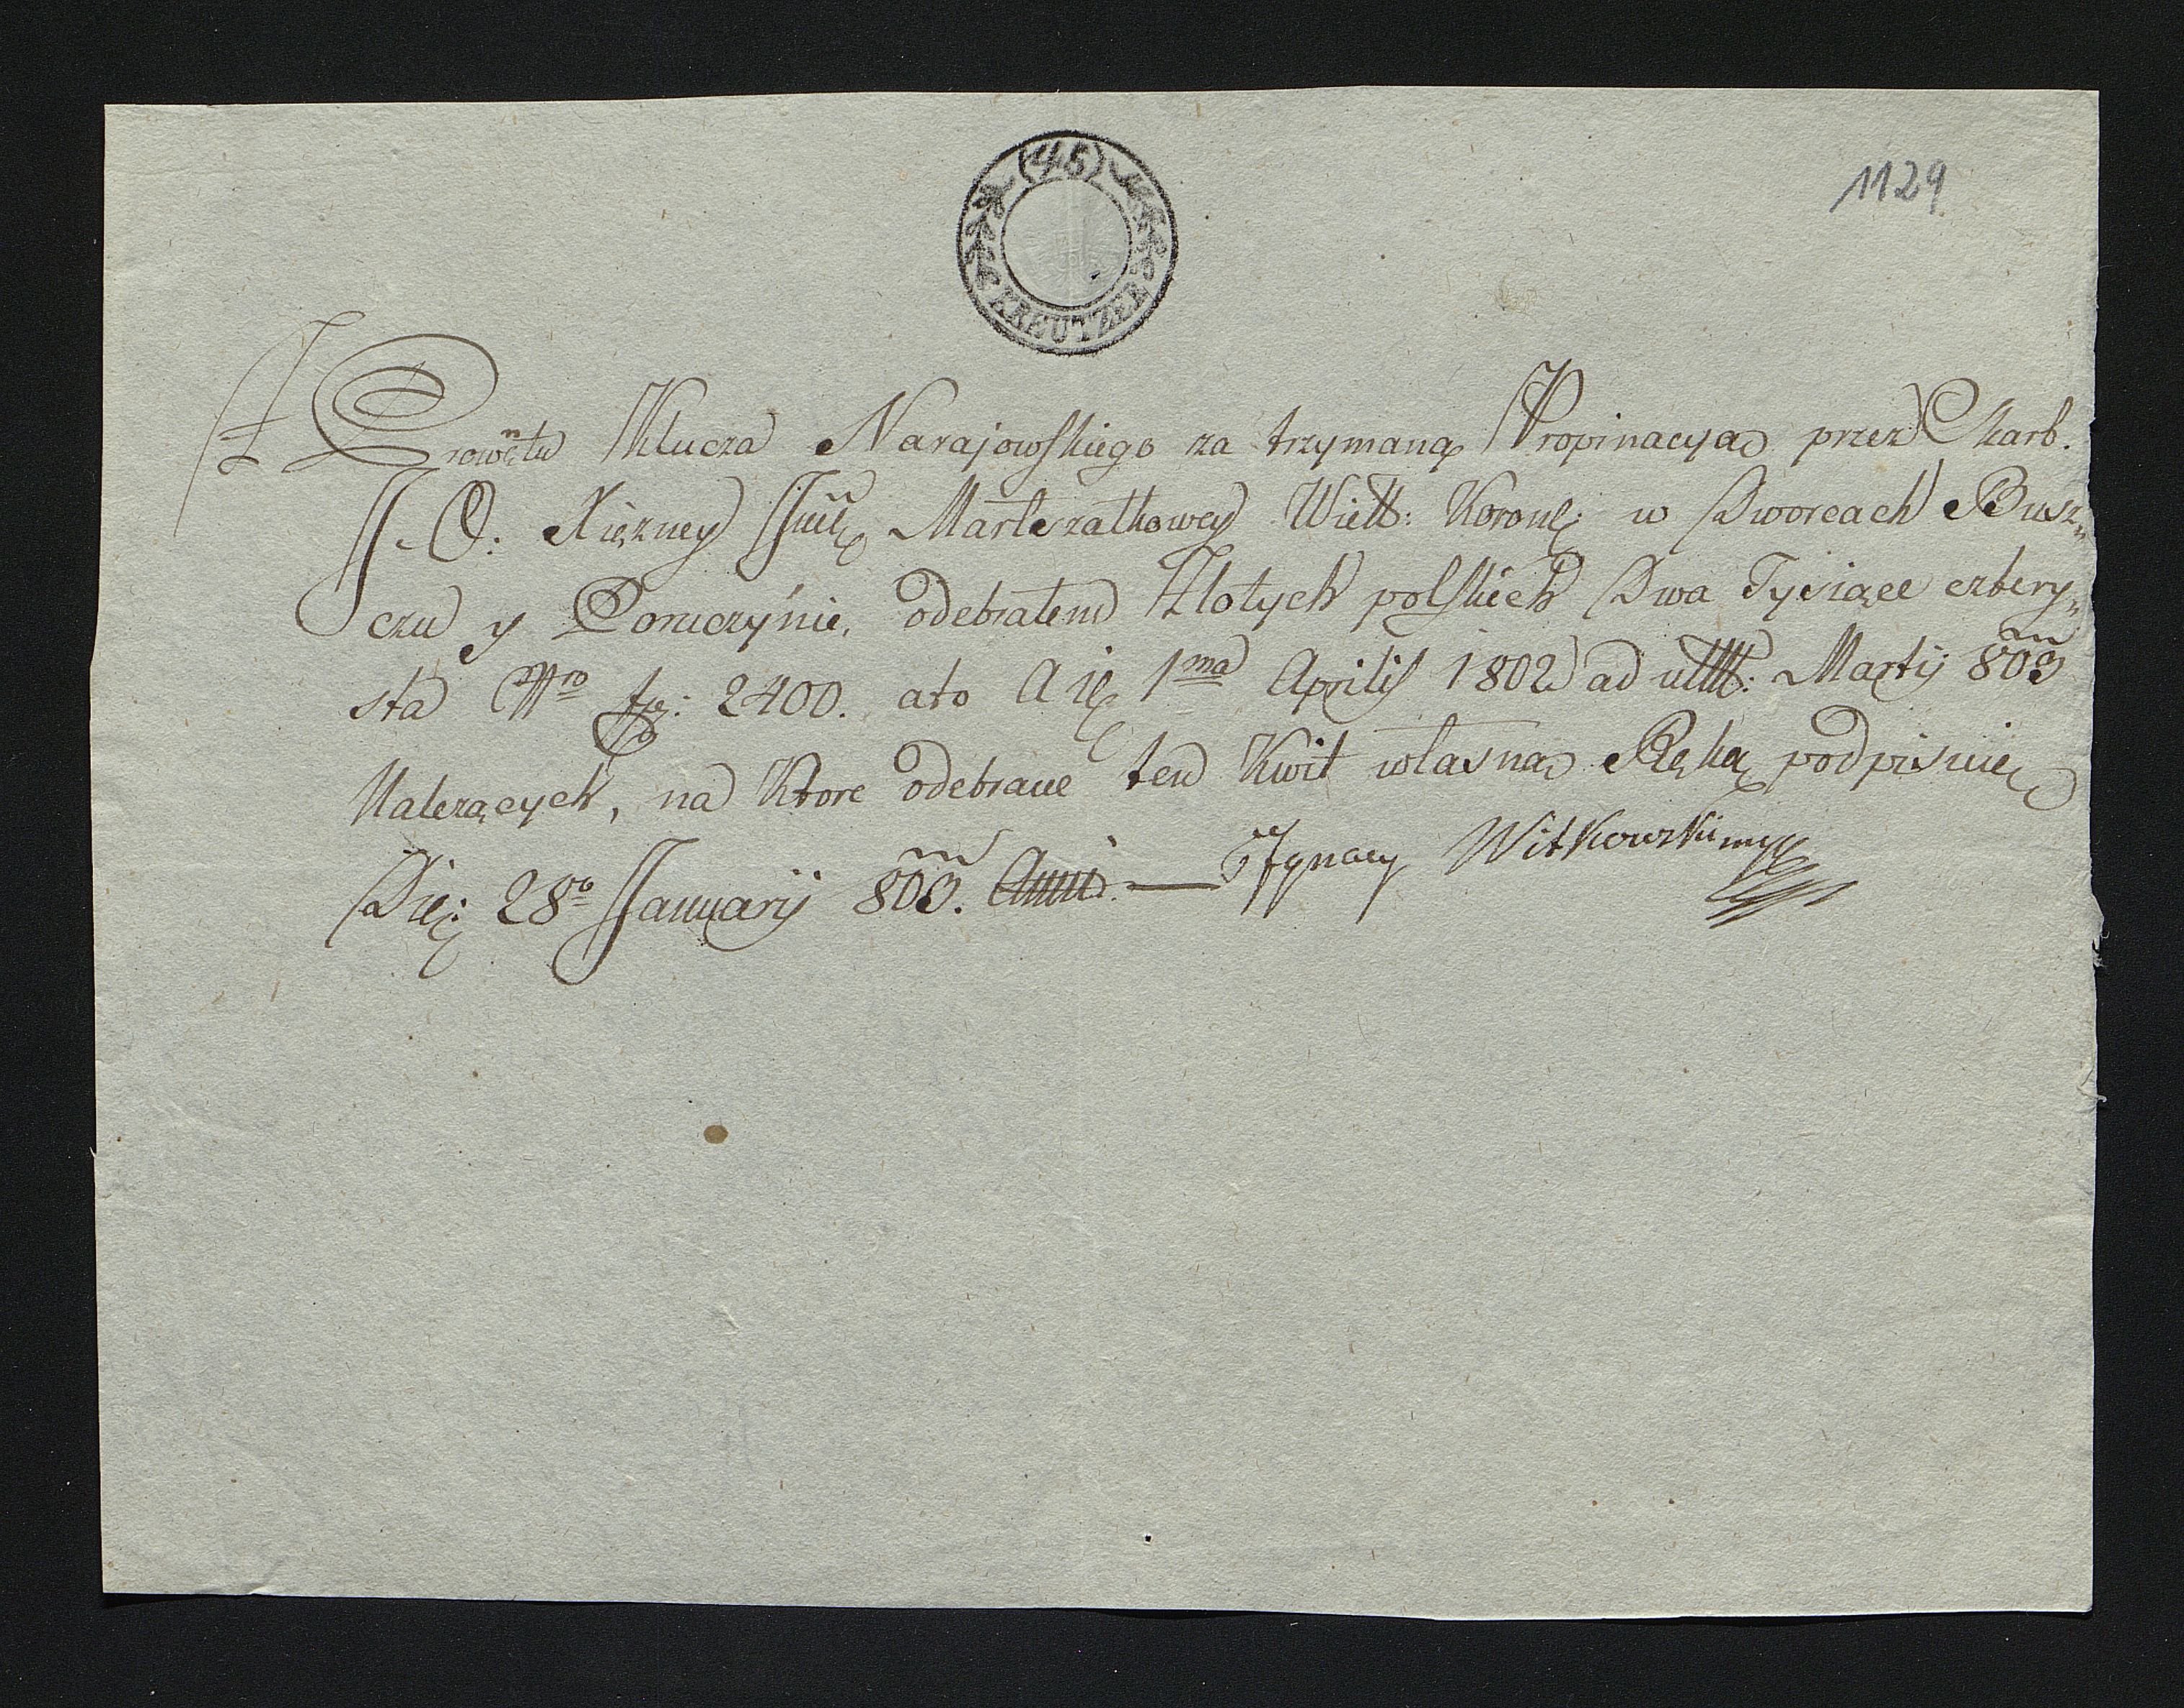 (45)
KREUTZER
1129
Z Prowentu Klucza Narajowskiego za trzymaną Propinacyą przez Skarb.
J. O. Xiężney Marszałkowey Wielk: Koronę: w Dworcach Busz„
czu y Poruczynie, odebrałem Złotych polskich Dwa Tysiące cztery„
sta Nro fp: 2400. ato A ię 1ma Aprilis 1802 ad ult: Martij 803
Należących, na ktore odebrane ten Kwit własną Ręką podpisuię
Die: 28o Januarij 803. Anni — Ignacy Witkowski mp